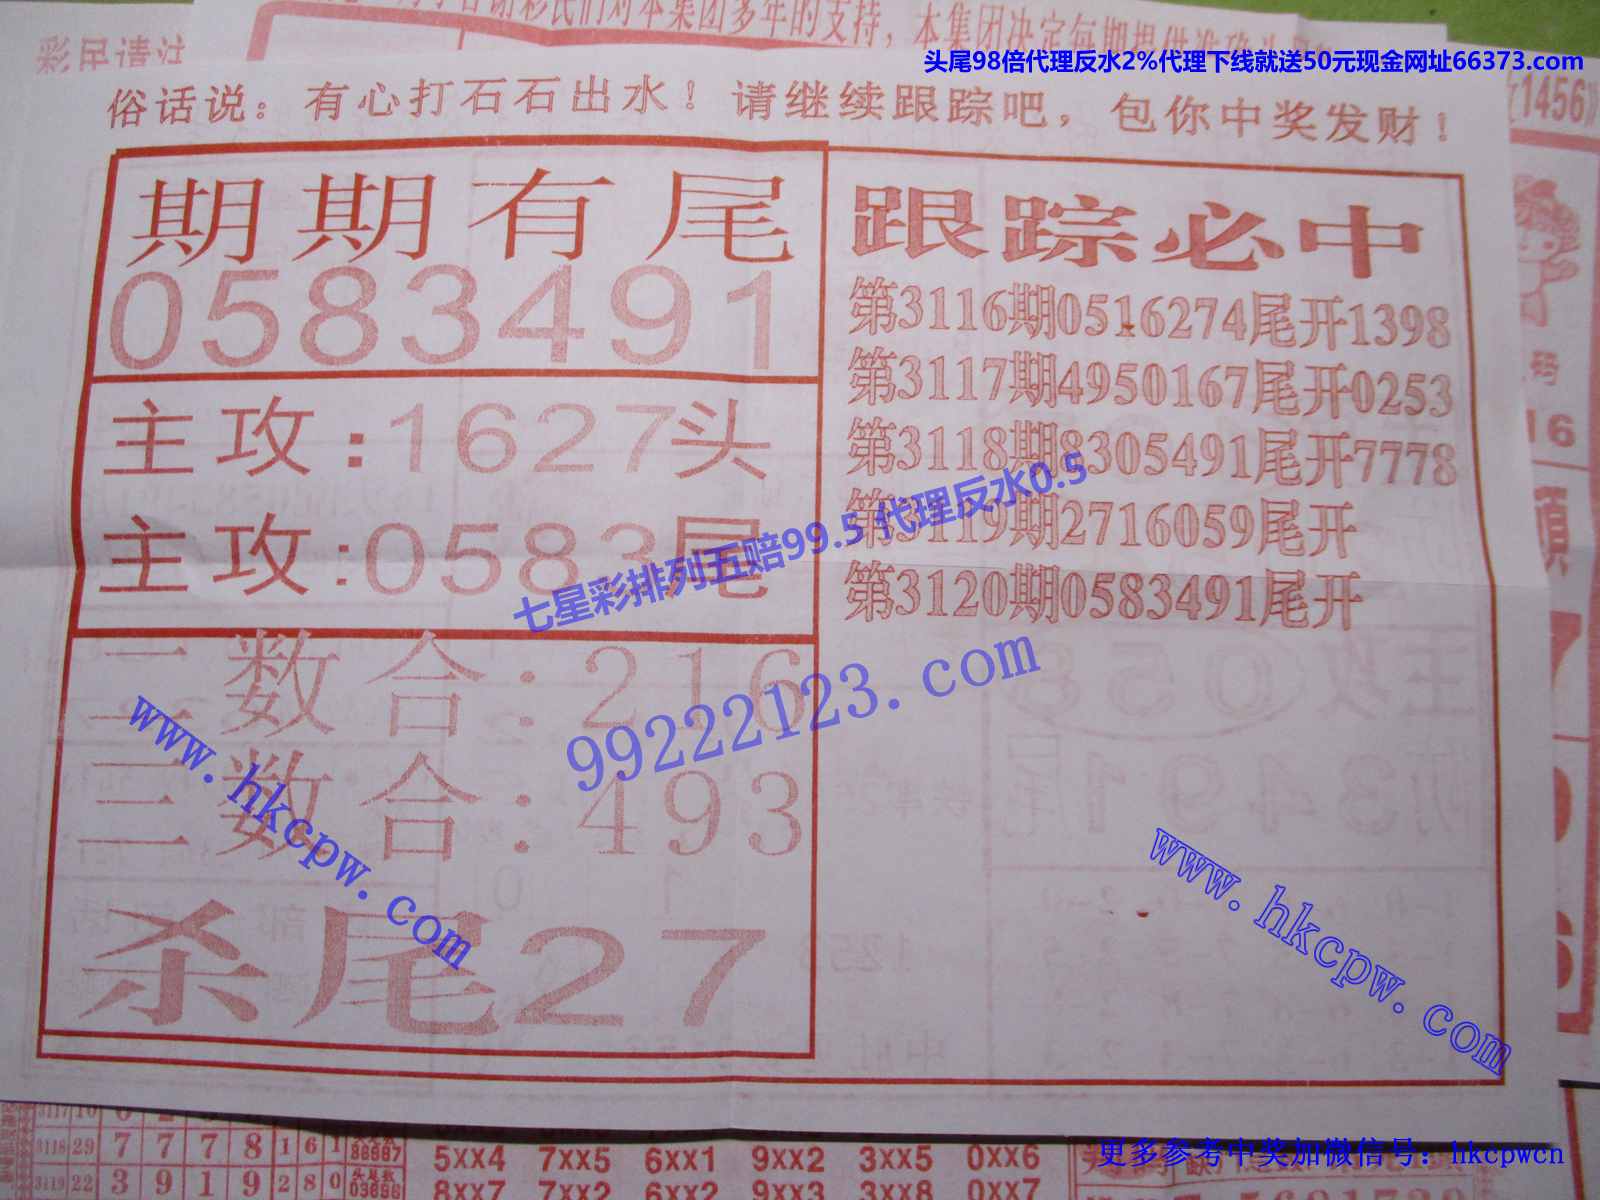 彩民请注
本集团多年的支持，本集团决定每期提供准确
头尾98倍代理反水2%代理下线就送50元现金网址66373.com
1456
俗话说：有心打石石出水！请继续跟踪吧，包你中奖发财！
期期有尾
0583491
主攻:1627头
主攻:0583尾
二数合:216
三数合:493
杀尾27
跟踪必中
第3116期0516274尾开1398
第3117期4950167尾开0253
第3118期8305491尾开7778
第3119期2716059尾开
第3120期0583491尾开
码
16
七星彩排列五赔99.5 代理反水0.5
99222123.com
www.hkcpw.com
www.hkcpw.com
3118 29 7 7 7 8 1 6 1
3119 22 3 9 1 9 2 8 0
5XX4 7XX5 6XX1 9XX2 3XX5 0XX6
8XX7 7XX2 6XX2 9XX3 3XX8 0XX7
更多参考中奖加微信号：hkcpwcn